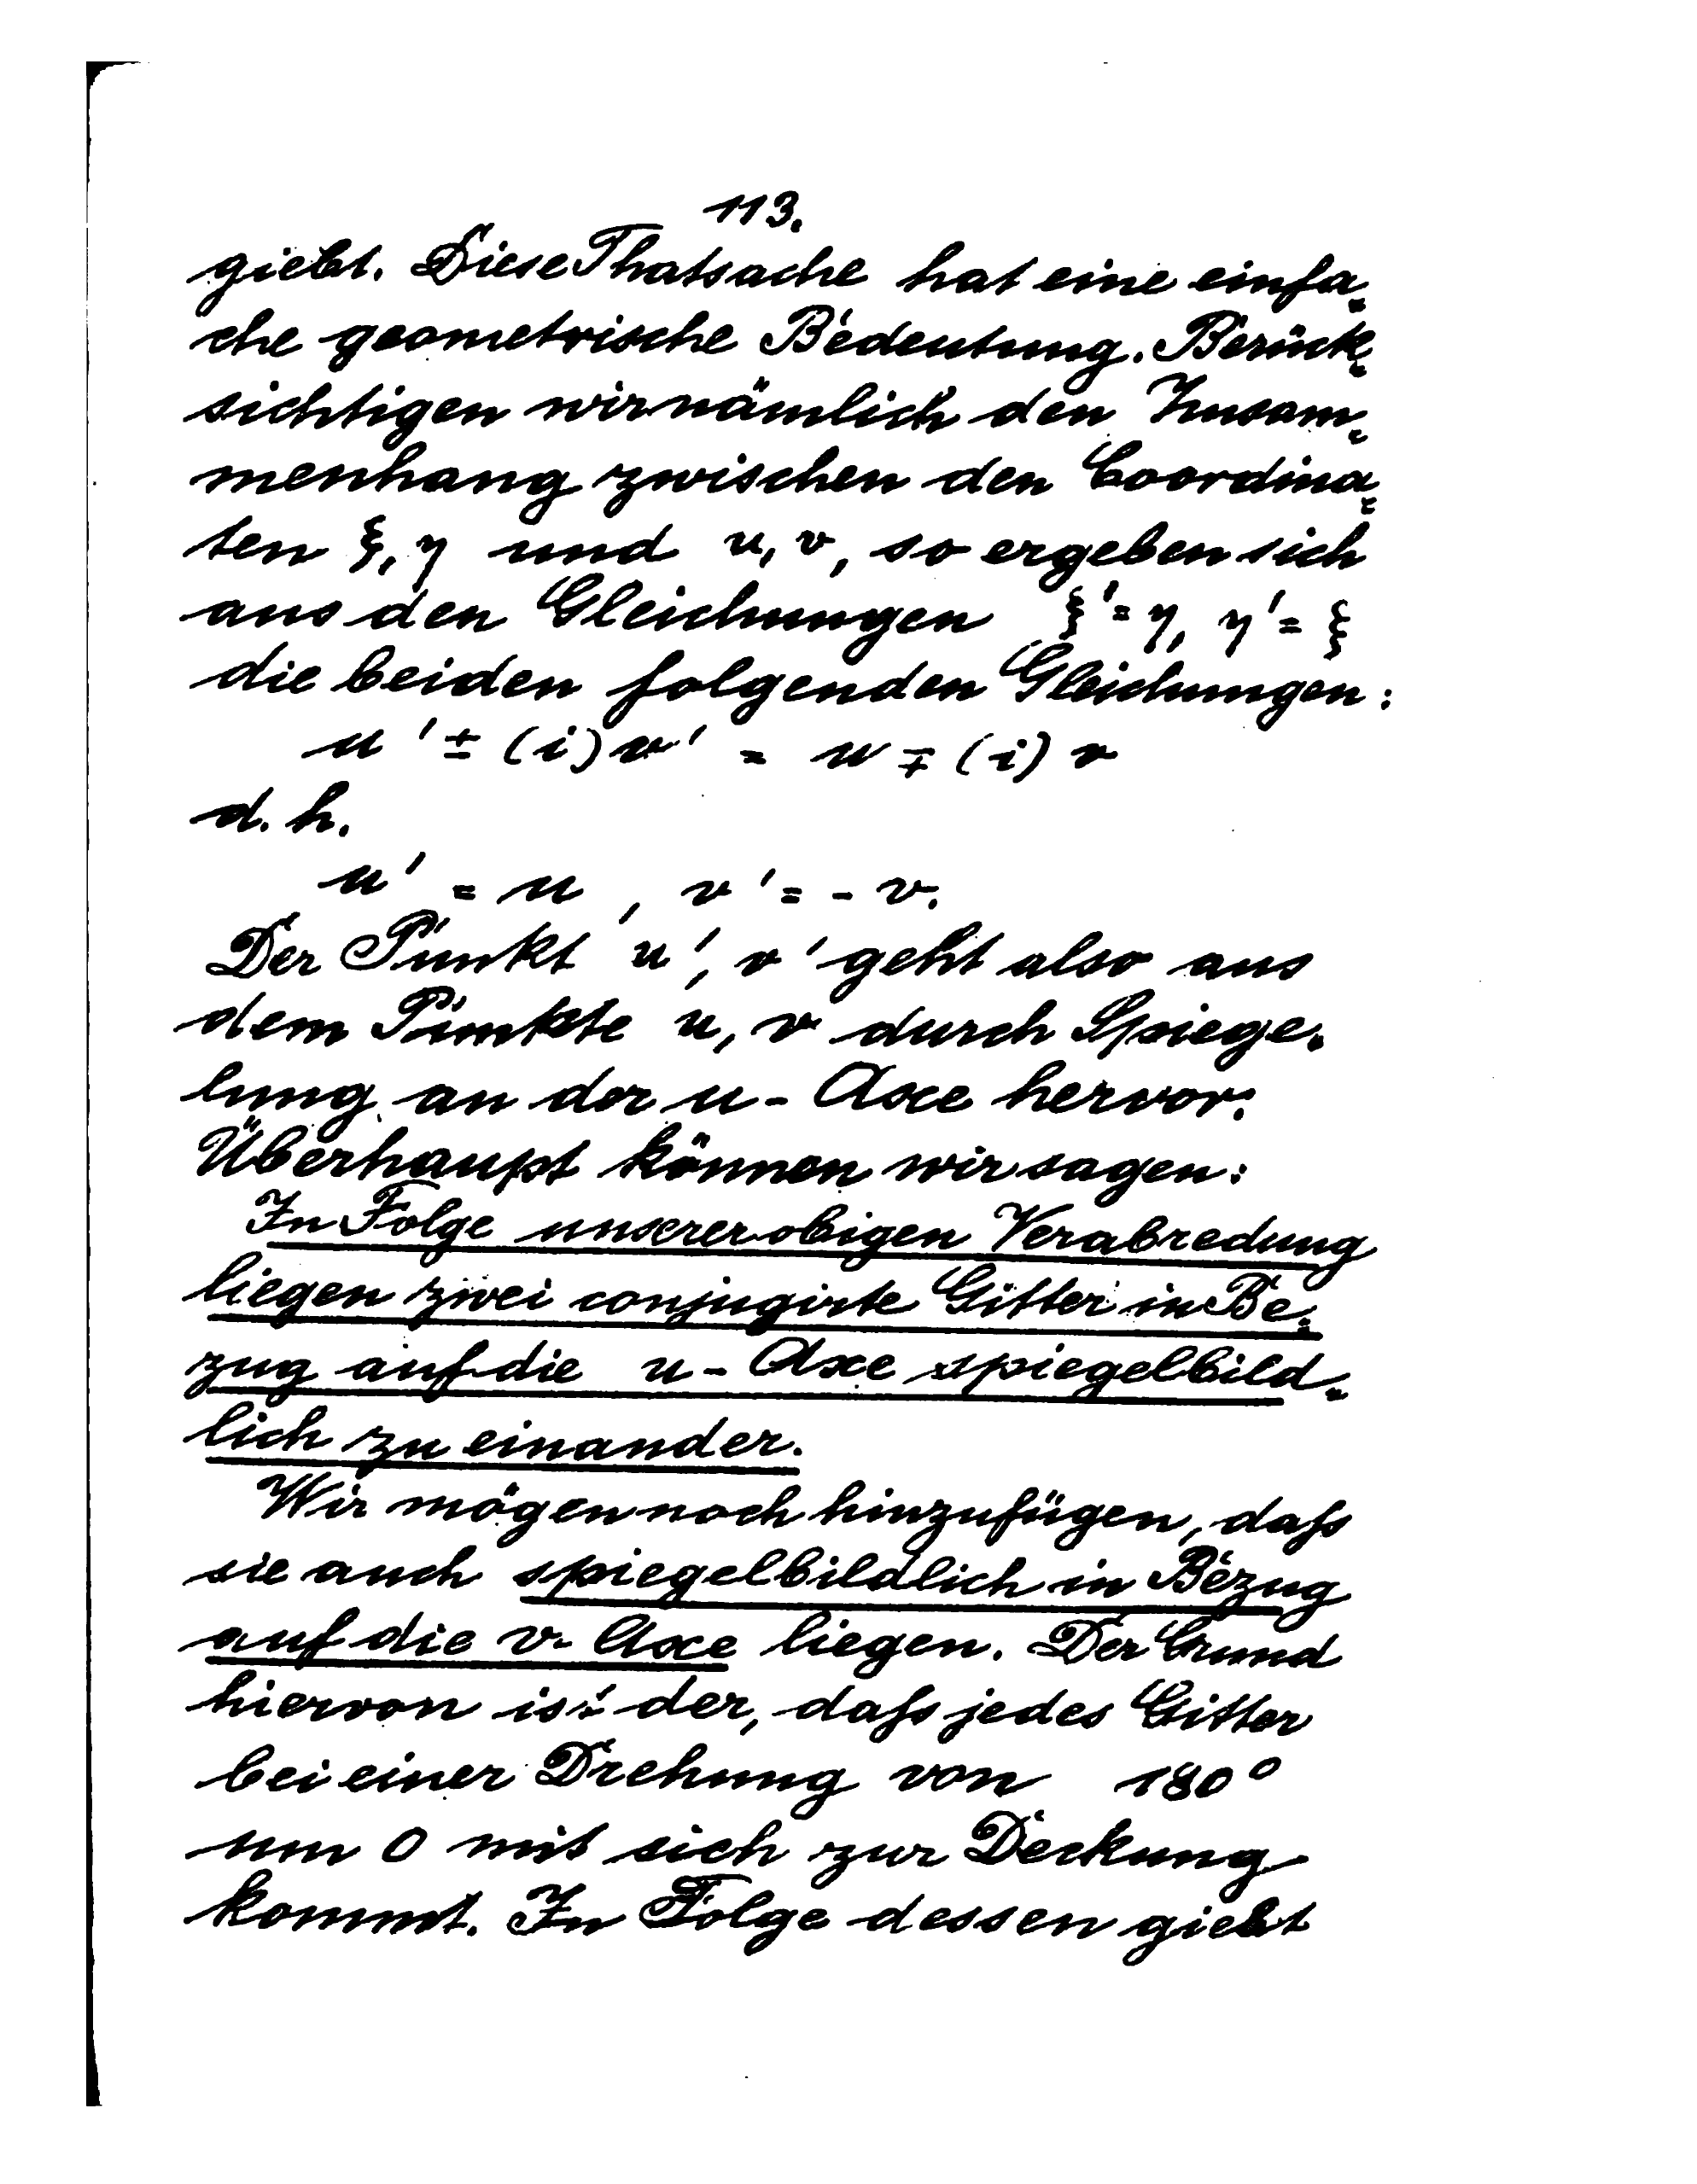 113.
giebt. Diese Thatsache hat eine einfa-
che geometrische Bedeutung. Berück-
sichtigen wir nämlich den Zusam-
menhang zwischen den Coordina-
ten ξ, η und u, v, so ergeben sich
aus den Gleichungen ξ' = η, η' = ξ
die beiden folgenden Gleichungen:
u' ± (i) v' = u ∓ (i) v
d. h.
u' = u, v' = - v.
Der Punkt u', v' geht also aus
dem Punkte u, v durch Spiege-
lung an der u - Axe hervor.
Überhaupt können wir sagen:
In Folge unserer obigen Verabredung
liegen zwei conjugirte Gitter in Be-
zug auf die u - Axe spiegelbild-
lich zu einander.
Wir mögen noch hinzufügen, daſs
sie auch spiegelbildlich in Bezug
auf die v- Axe liegen. Der Grund
hiervon ist der, daſs jedes Gitter
bei einer Drehung von 180°
um O mit sich zur Deckung
kommt. In Folge dessen giebt